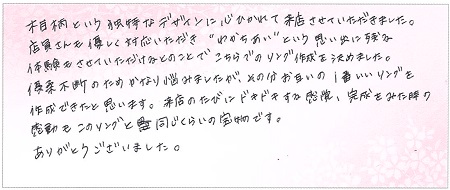 木目柄という独特なデザインに心ひかれて来店させていただきました。
店員さんも優しく対応いただき"わかちあい"という思い出に残る
体験をさせていただけるとのことでこちらでのリング作成を決めました。
優柔不断のためかなり悩みましたが、その分お互いの1番いいリングを
作成できたと思います。来店のたびにドキドキする感覚、完成をみた時の
感動もこのリングと同じくらいの宝物です。
ありがとうございました。